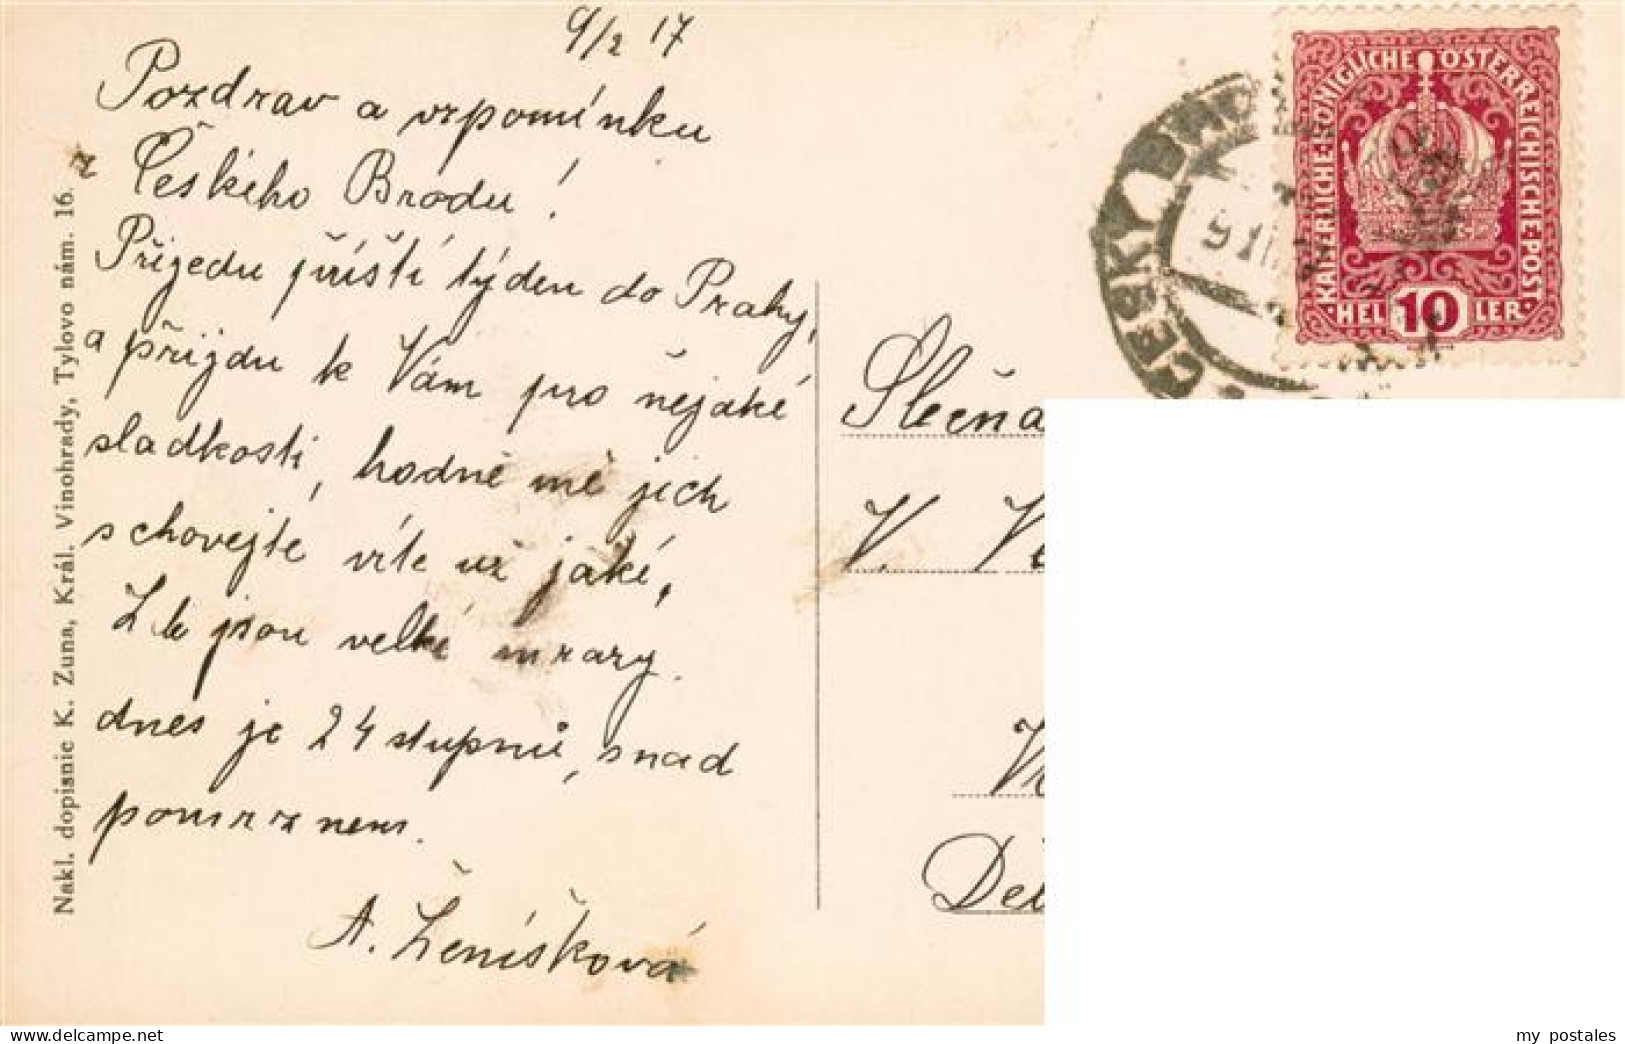 9/2 17
Pozdrav a vzpomínku
z Českého Brodu!
Přijedu příští týden do Prahy,
a přijdu k Vám pro nějaké
sladkosti, hodně mě jich
schovejte víte už jaké,
Zde jsou velké mrazy.
dnes je 24 stupnů, snad
pomrznem.
A. Ženíšková
Nakl. dopisnic K. Zuna, Král. Vinohrady, Tylovo nám. 16.
ČESKÝ BROD
KAISERLICHE·KÖNIGLICHE·ÖSTERREICHISCHE·POST·
HELLER
10
Slečna
V.
my postales